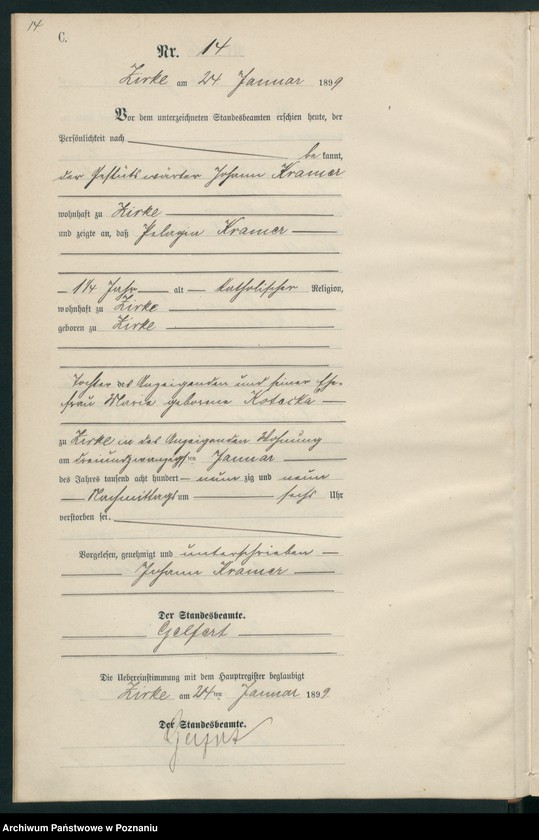 14
C.
Nr. 14
Zirke am 24 Januar 1899
Vor dem unterzeichneten Standesbeamten erschien heute, der
Persönlichkeit nach
be kannt,
der Gestütswärter Johann Kramer
wohnhaft zu Zirke
und zeigte an, daß Pelagia Kramer
1 1/4 Jahr alt katholischer Religion,
wohnhaft zu Zirke
geboren zu Zirke
Tochter des Anzeigenden und seiner Ehe-
frau Maria geborene
zu Zirke in des Anzeigenden Wohnung
am dreiundzwanzigsten Januar
des Jahres tausend acht hundert neun zig und neun
Nachmittags um sechs Uhr
verstorben sei.
Vorgelesen, genehmigt und unterschrieben
Johann Kramer
Der Standesbeamte.
Gelfert
Die Uebereinstimmung mit dem Hauptregister beglaubigt
Zirke am 24ten Januar 1899
Der Standesbeamte.
Gelfert
Archiwum Państwowe w Poznaniu